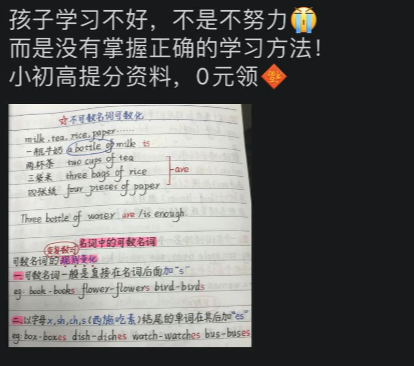 孩子学习不好，不是不努力😭
而是没有掌握正确的学习方法！
小初高提分资料，0元领🧧
☆不可数名词可数化
milk , tea, rice, paper……
一瓶牛奶 a bottle of milk is
两杯茶 two cups of tea
三袋米 three bags of rice
四张纸 four pieces of paper
-are
Three bottle of water are /is enough.
名词中的可数名词
可数名词的规则变化
一.可数名词一般是直接在名词后面加"s"
eg: book-books flower-flowers bird-birds
二.以字母x,sh,ch,s(西施吃素)结尾的单词在其后加"es"
eg: box-boxes dish-dishes watch-watches bus-buses